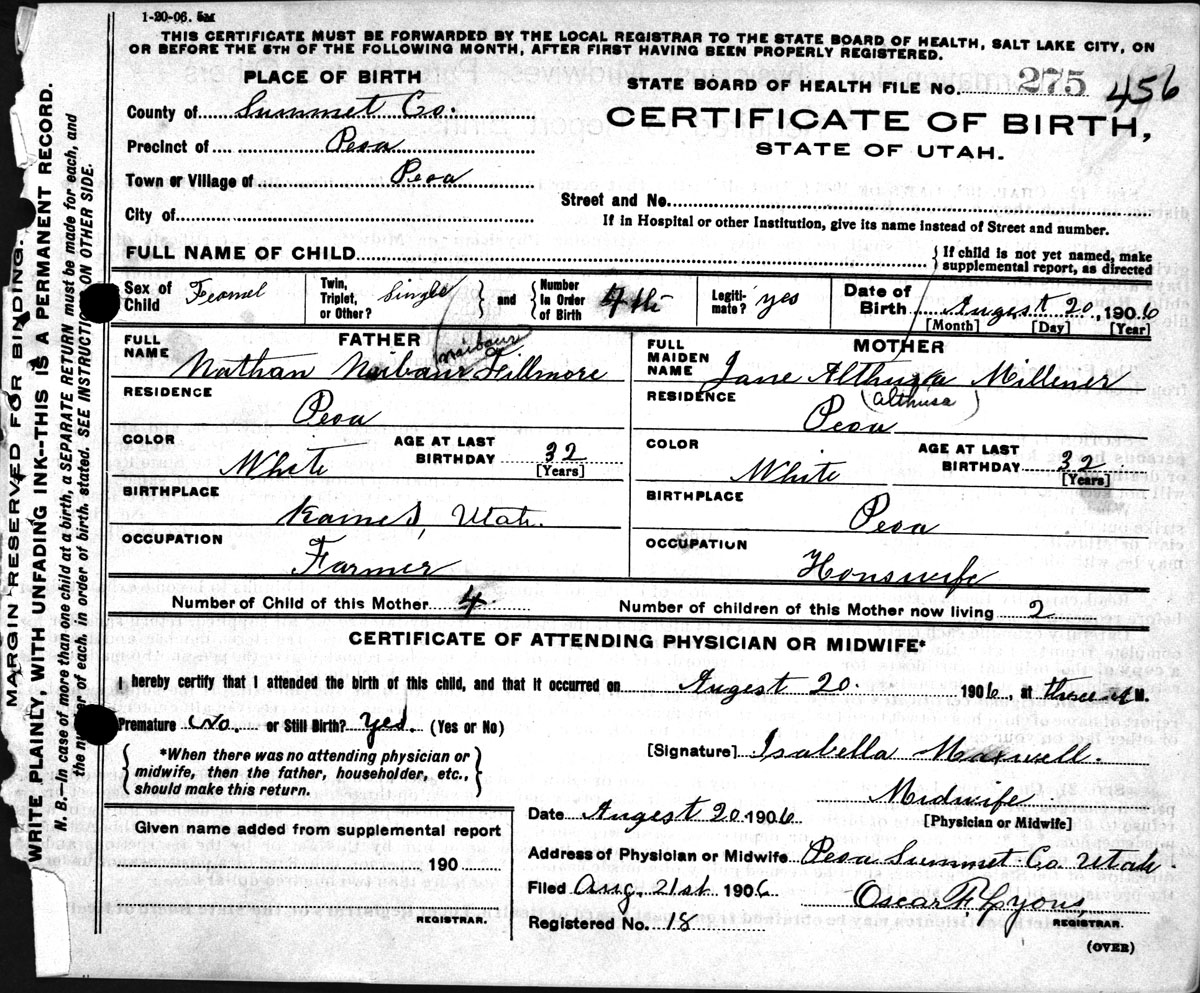 1-20-06. 5M
THIS CERTIFICATE MUST BE FORWARDED BY THE LOCAL REGISTRAR TO THE STATE BOARD OF HEALTH, SALT LAKE CITY, ON
OR BEFORE THE 5TH OF THE FOLLOWING MONTH, AFTER FIRST HAVING BEEN PROPERLY REGISTERED.
PLACE OF BIRTH
STATE BOARD OF HEALTH FILE No. 275 456
County of Summet Co.
CERTIFICATE OF BIRTH,
STATE OF UTAH.
Precinct of Peoa
Town or Village of Peoa
Street and No.
City of
If in Hospital or other Institution, give its name instead of Street and number.
FULL NAME OF CHILD
If child is not yet named, make
supplemental report, as directed
Sex of Child Feamel
Twin, Triplet, or Other? Single
and
Number In Order of Birth 4th
Legiti- mate? yes
Date of Birth Augest 20, 1906
[Month] [Day] [Year]
FATHER
FULL NAME Nathan Naibaur Fillmore
Naibaur
MOTHER
FULL MAIDEN NAME Jane Althusa Millener
(Althusa)
RESIDENCE Peoa
RESIDENCE Peoa
COLOR White
AGE AT LAST BIRTHDAY 32
[Years]
COLOR White
AGE AT LAST BIRTHDAY 32
[Years]
BIRTHPLACE Kames, Utah.
BIRTHPLACE Peoa
OCCUPATION Farmer
OCCUPATION Honswife
Number of Child of this Mother 4
Number of children of this Mother now living 2
CERTIFICATE OF ATTENDING PHYSICIAN OR MIDWIFE*
I hereby certify that I attended the birth of this child, and that it occurred on Augest 20. 1906, at three A M.
Premature No. or Still Birth? yes (Yes or No)
*When there was no attending physician or
midwife, then the father, householder, etc.,
should make this return.
[Signature] Isabella Maxwell.
Midwife
[Physician or Midwife]
Date Augest 20 1906
Given name added from supplemental report
190
REGISTRAR.
Address of Physician or Midwife Peoa Summet Co. Utah.
Filed Aug. 21st 1906
Oscar F. Lyons,
REGISTRAR.
Registered No. 18
(OVER)
MARGIN RESERVED FOR BINDING.
WRITE PLAINLY, WITH UNFADING INK--THIS IS A PERMANENT RECORD.
N. B.—In case of more than one child at a birth, a SEPARATE RETURN must be made for each, and
the number of each, in order of birth, stated. SEE INSTRUCTIONS ON OTHER SIDE.